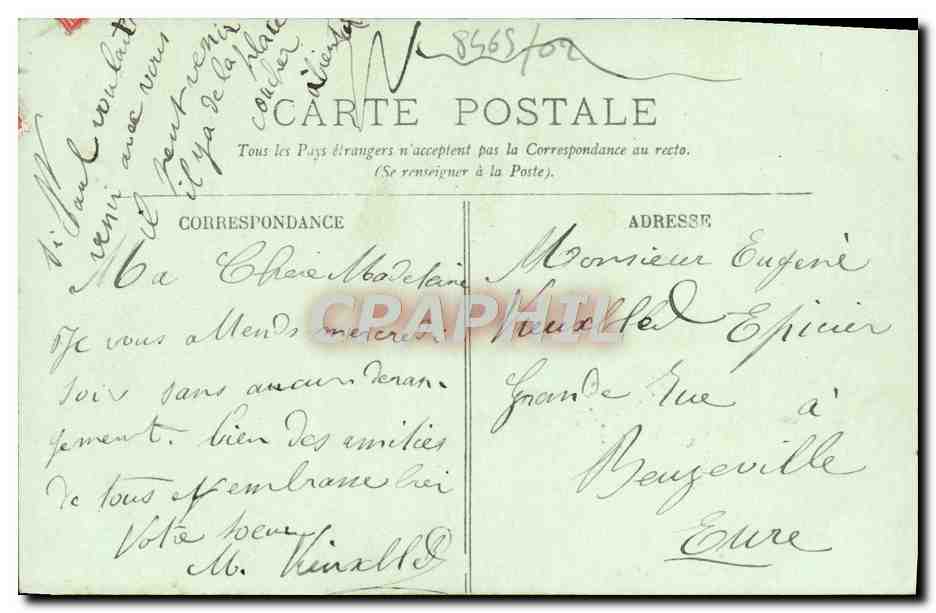 8465/02
Si Paul voulait
venir avec vous
il peut venir
il y a de la place
coucher
à bientôt
CARTE POSTALE
Tous les Pays étrangers n'acceptent pas la Correspondance au recto.
(Se renseigner à la Poste).
CORRESPONDANCE
Ma Chere Madelaine
Je vous attends mercredi
soir sans aucun deran-
gement. bien des amitiés
de tous
Votre soeur
M.
ADRESSE
Monsieur Eugené
Epicier
Grande Rue à
Beuzeville
Eure
CPAPHIL